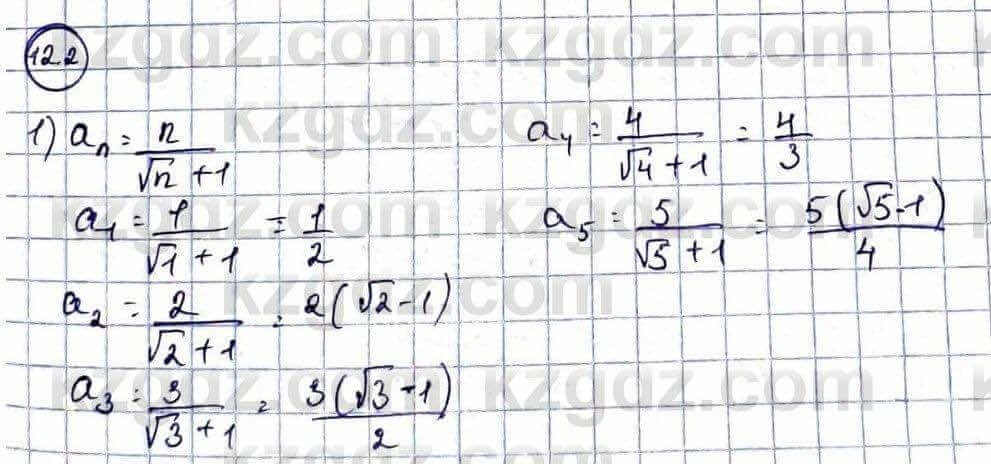 12.2
1) aₙ = n/(√n + 1)
a₁ = 1/(√1 + 1) = 1/2
a₂ = 2/(√2 + 1) = 2(√2 - 1)
a₃ = 3/(√3 + 1) = 3(√3 - 1)/2
a₄ = 4/(√4 + 1) = 4/3
a₅ = 5/(√5 + 1) = 5(√5 - 1)/4
kzgdz.com kzgdz.com
kzgdz.com kzgdz.com
kzgdz.com kzgdz.com
kzgdz.com
kzgdz.com kzgdz.com